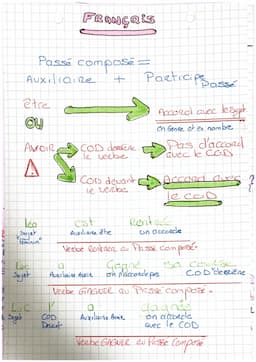 FRANÇAIS
Passé composé =
Auxiliaire + Participe Passé
Être
Accord avec le sujet
en genre et en nombre
OU
AVOIR COD derrière le verbe Pas d'accord avec le COD
COD devant le verbe Accord avec le COD
Léa est
Sujet Auxiliaire être on accorde
Verbe RENTRER au Passé composé.
Luc a Gagné sa
Sujet Auxiliaire Avoir on n'accorde pas COD derrière
Verbe GAGNER au Passé composé.
Luc l' a
Sujet COD Devant Auxiliaire Avoir on accorde avec le COD
Verbe GAGNER au Passé Composé